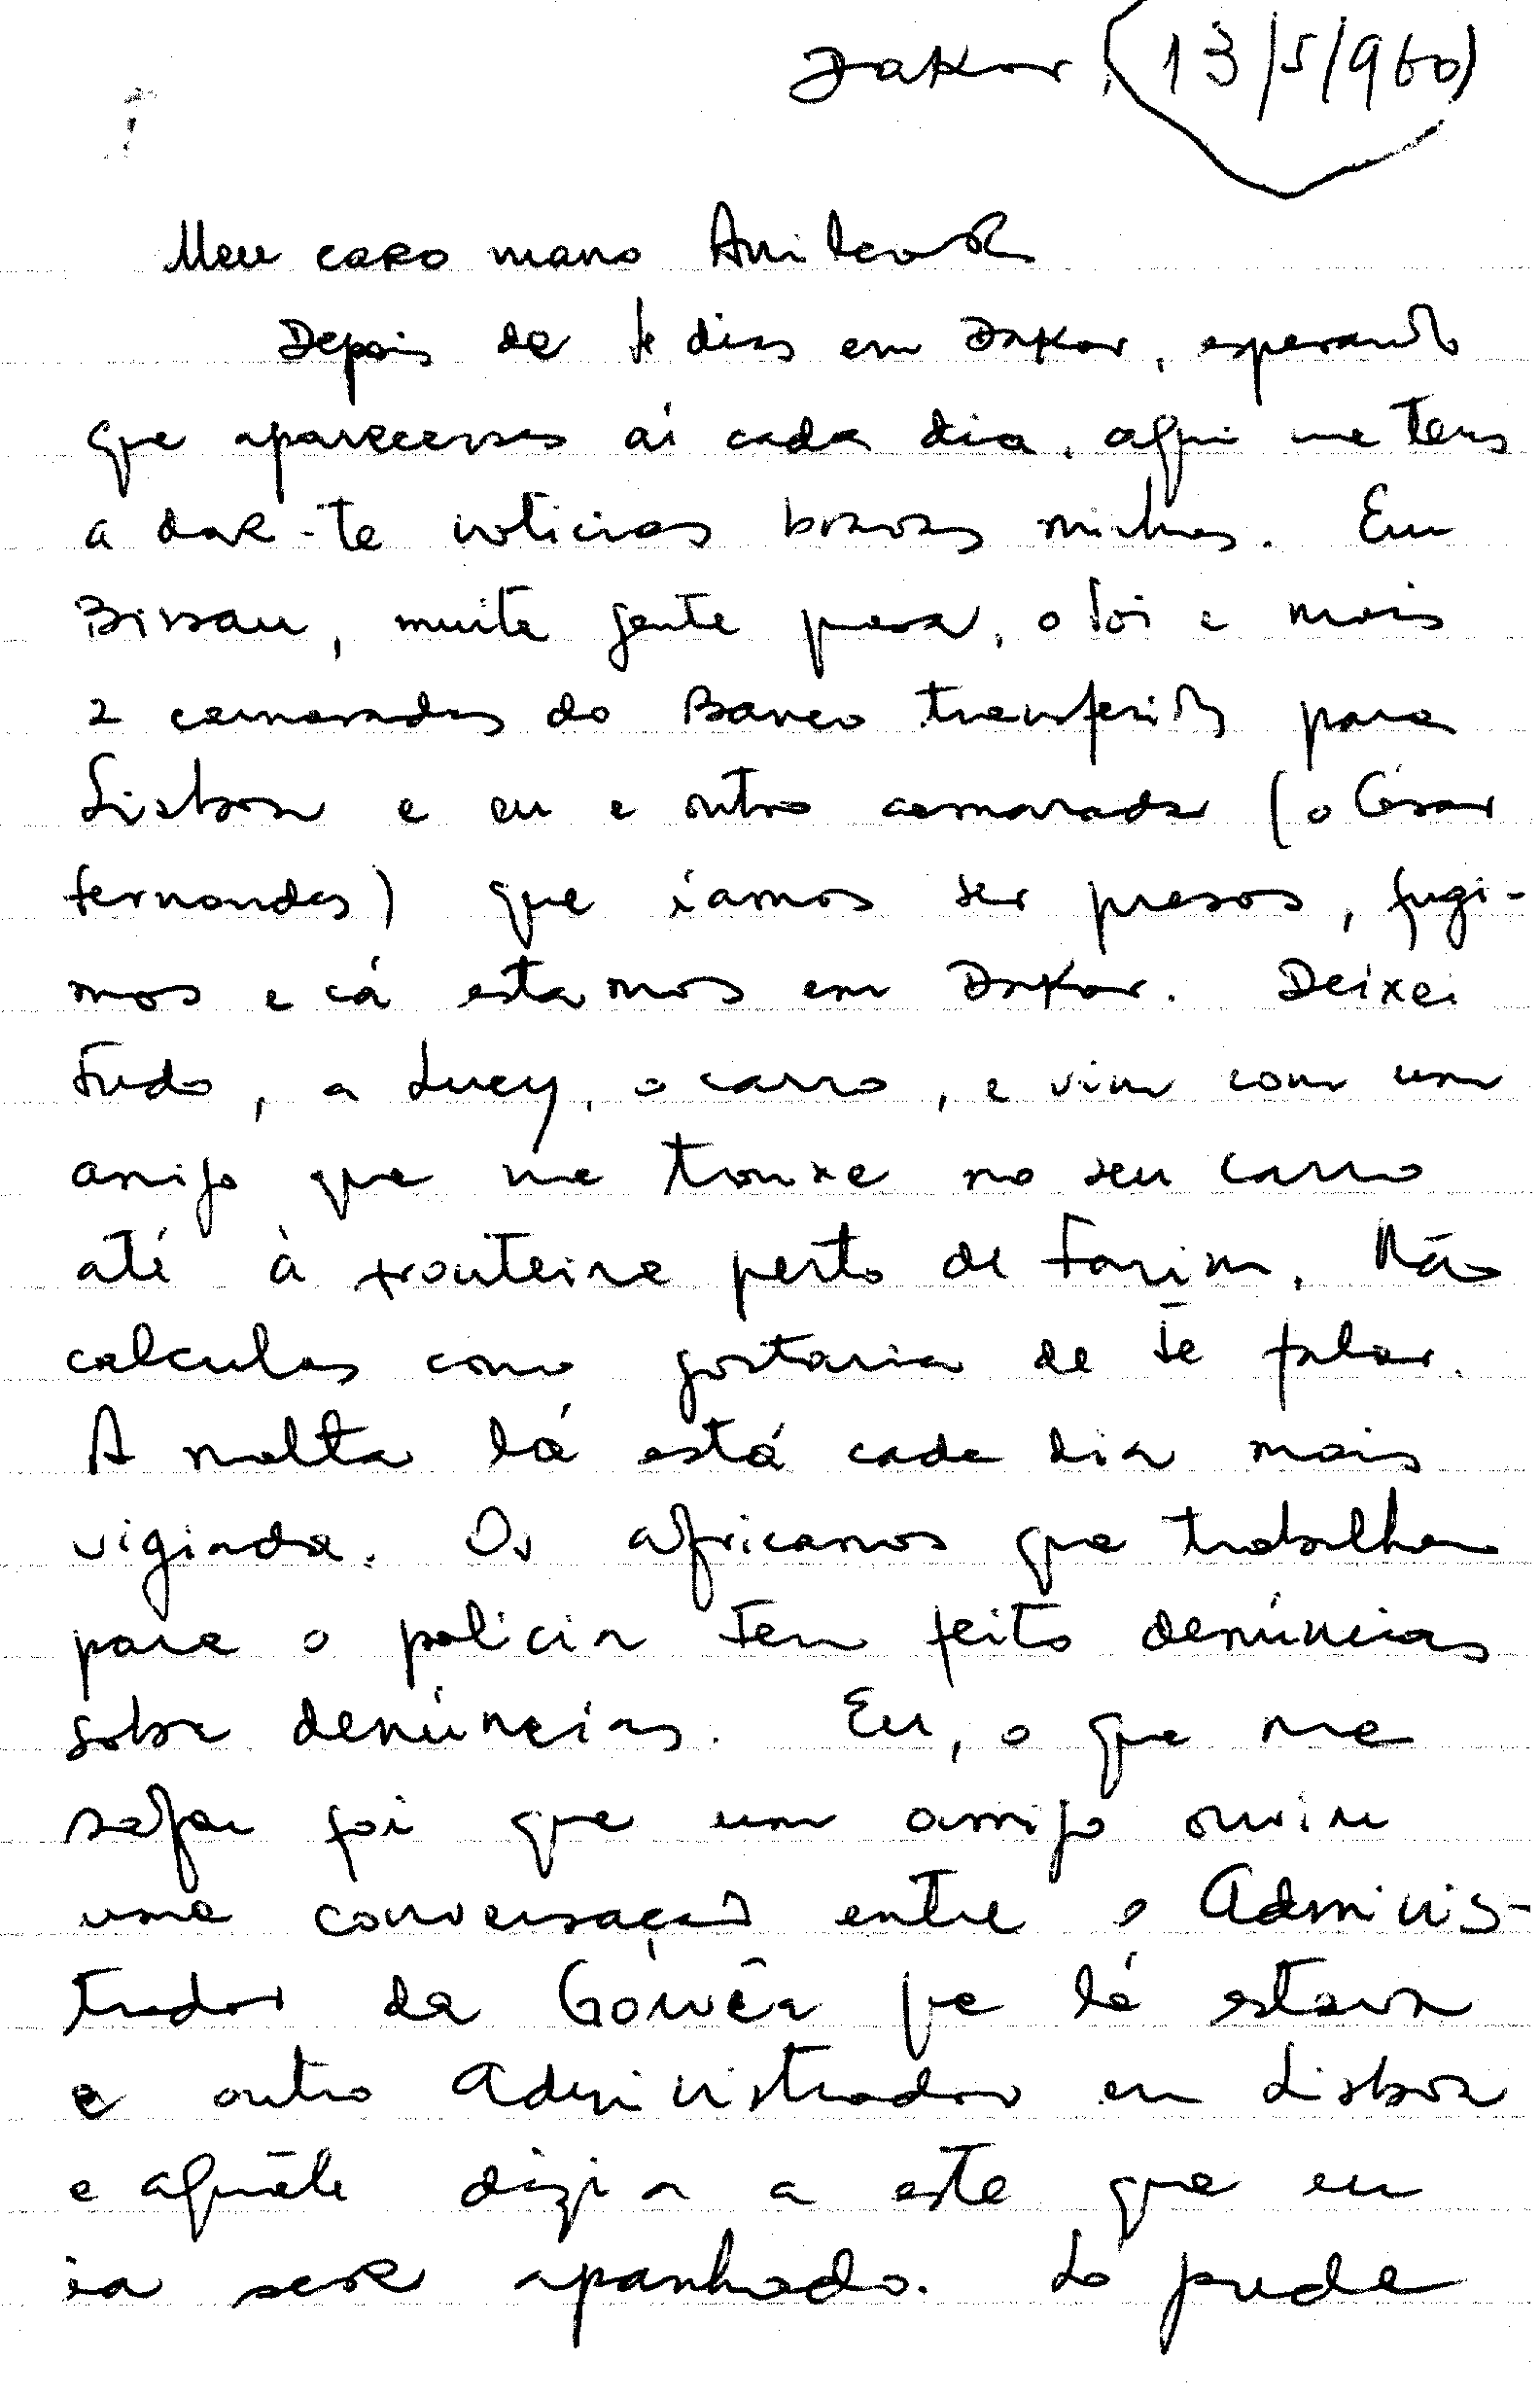 Dakar, (13/5/960)
Meu caro mano Amilcar
Depois de dias em Dakar, esperando
que aparecesses aí cada dia, aqui me tens
a dar-te notícias minhas. Em
Bissau, muita gente presa, o foi e mais
2 camaradas do Banco transferidos para
Lisboa e eu e outro camarada (o César
Fernandes) que íamos ser presos, fugi-
mos e cá estamos em Dakar. Deixei
tudo, a Lucy, o carro, e vim com um
amigo que me trouxe no seu carro
até à fronteira perto de Farim. Não
calculas como gostaria de te falar.
A malta lá está cada dia mais
vigiada. Os africanos que trabalham
para a polícia tem feito denúncias
sobre denúncias. Eu, o que me
safou foi que um amigo ouviu
uma conversação entre o Adminis-
trador da Gouvêa que lá estava
e outro Administrador em Lisboa
e aquêle dizia a este que eu
ia ser apanhado. Lá pude